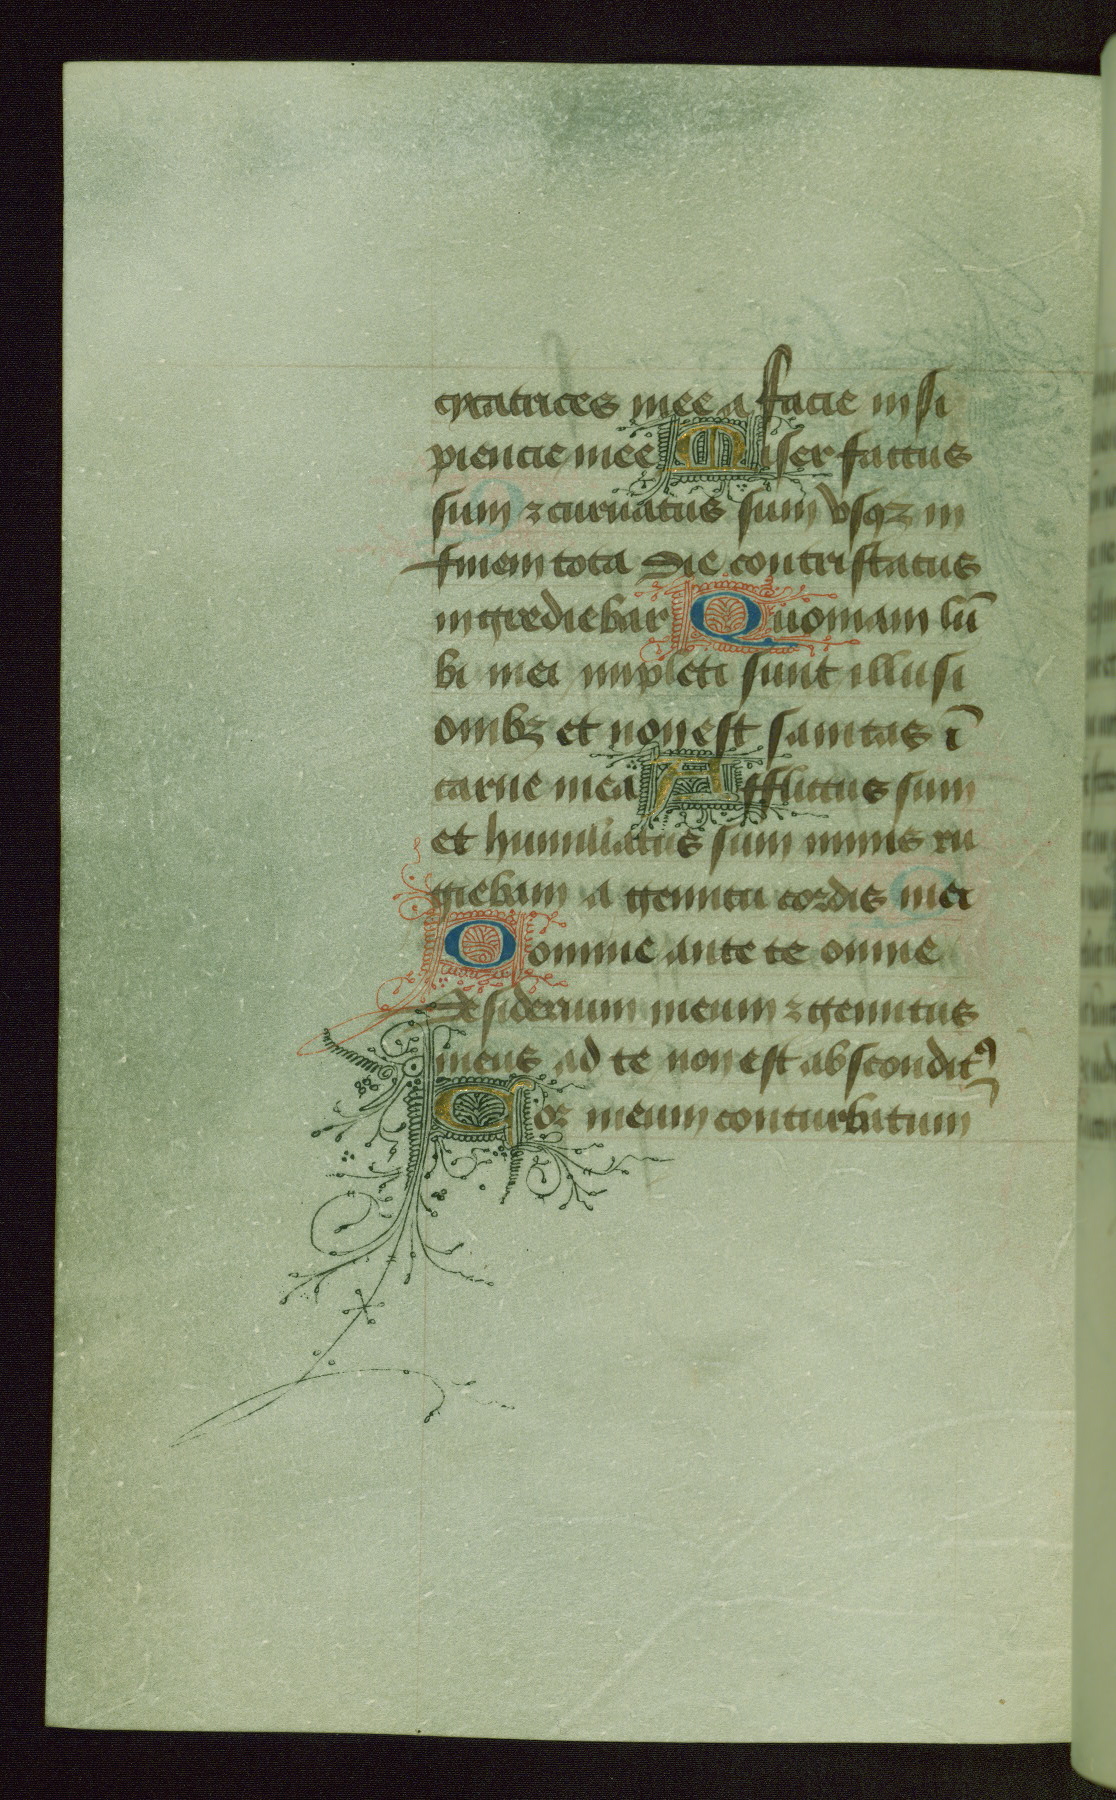 cycatrices mee a facie insi
piencie mee Miser factus
sum ⁊ curuatus sum vsqꝫ in
finem tota die contristatus
ingrediebar Quoniam lū
bi mei impleti sunt illusi
onibꝫ et non est sanitas ī
carne mea Afflictus sum
et humiliatus sum nimis ru
giebam a gemitu cordis mei
Domine ante te omne
desiderium meum ⁊ gemitus
meus ad te non est absconditꝰ
Cor meum conturbatum